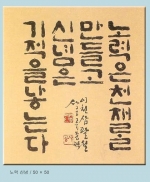 노력은 천재를
만들고
신념은
기적을 낳는다
노력 신념 / 50 × 58